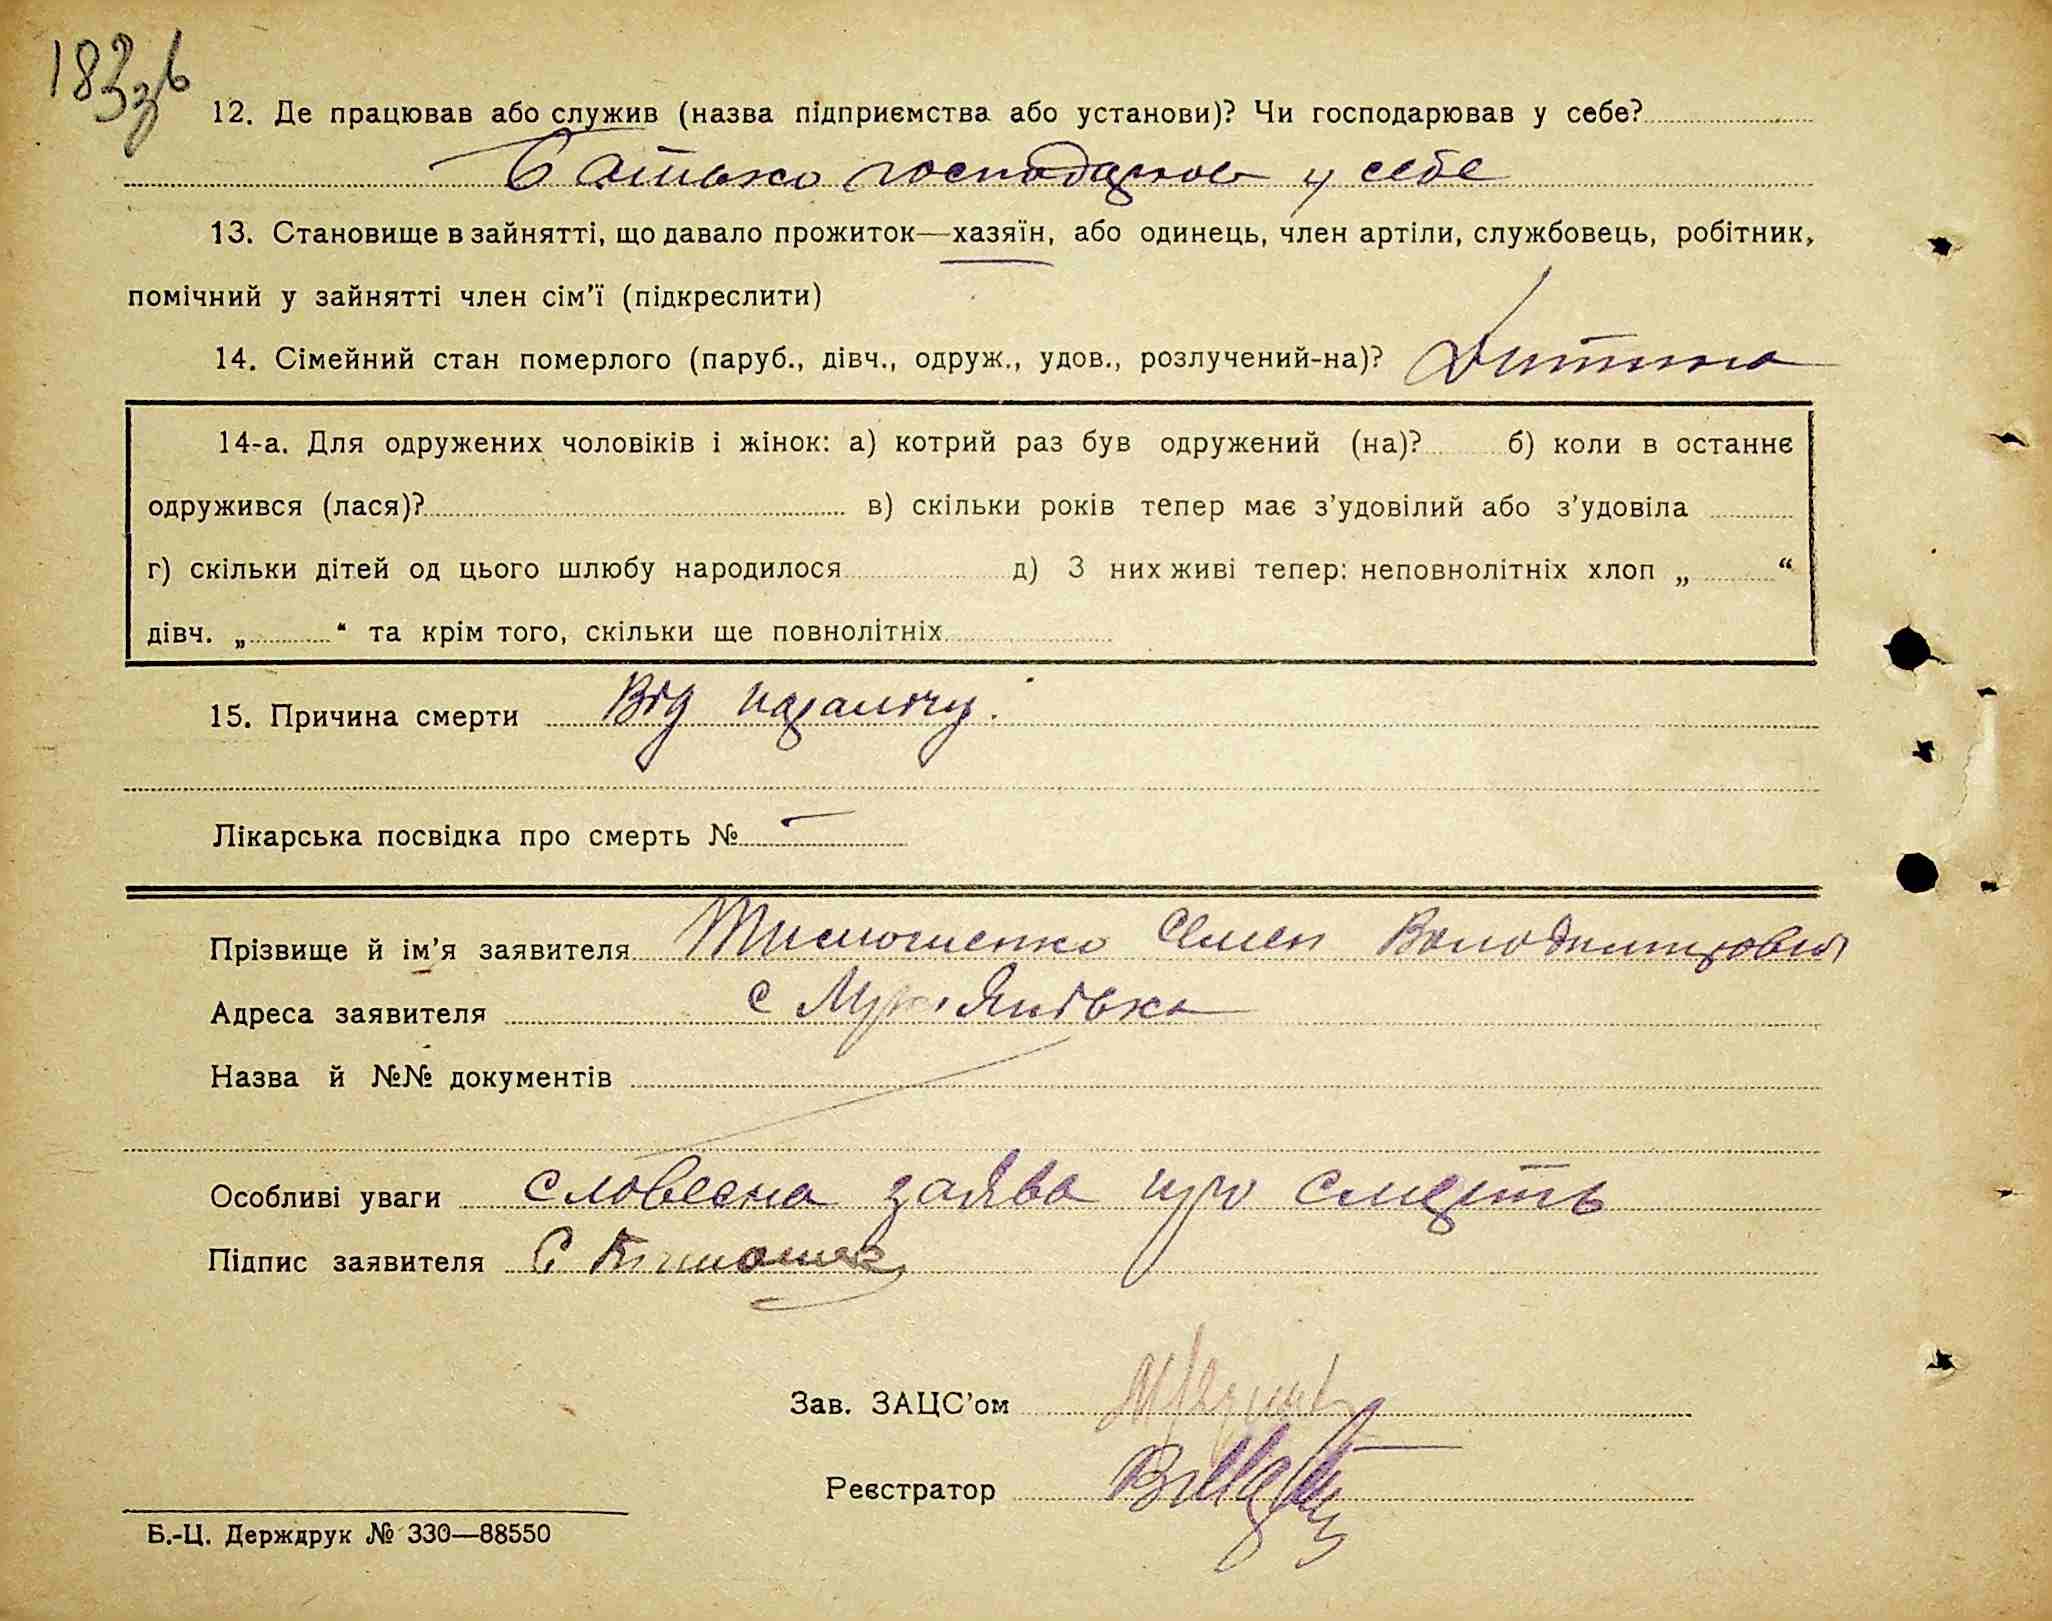 12. Де працював або служив (назва підприємства або установи)? Чи господарював у себе?
Батько господарював у себе
13. Становище в зайнятті, що давало прожиток—хазяїн, або одинець, член артіли, службовець, робітник,
помічний у зайнятті член сім'ї (підкреслити)
14. Сімейний стан померлого (паруб., дівч., одруж., удов., розлучений-на)? Дитина
14-а. Для одружених чоловіків і жінок: а) котрий раз був одружений (на)? б) коли в останнє
одружився (лася)? в) скільки років тепер має з'удовілий або з'удовіла
г) скільки дітей од цього шлюбу народилося д) З них живі тепер: неповнолітніх хлоп „ “
дівч. „ “ та крім того, скільки ще повнолітніх
15. Причина смерти Від паралічу.
Лікарська посвідка про смерть № —
Прізвище й ім'я заявителя Тимошенко Семен Володимирович
Адреса заявителя с
Назва й №№ документів
Особливі уваги словесна заява про смерть
Підпис заявителя С Тимошенк
Зав. ЗАЦС'ом
Реєстратор
Б.-Ц. Держдрук № 330—88550